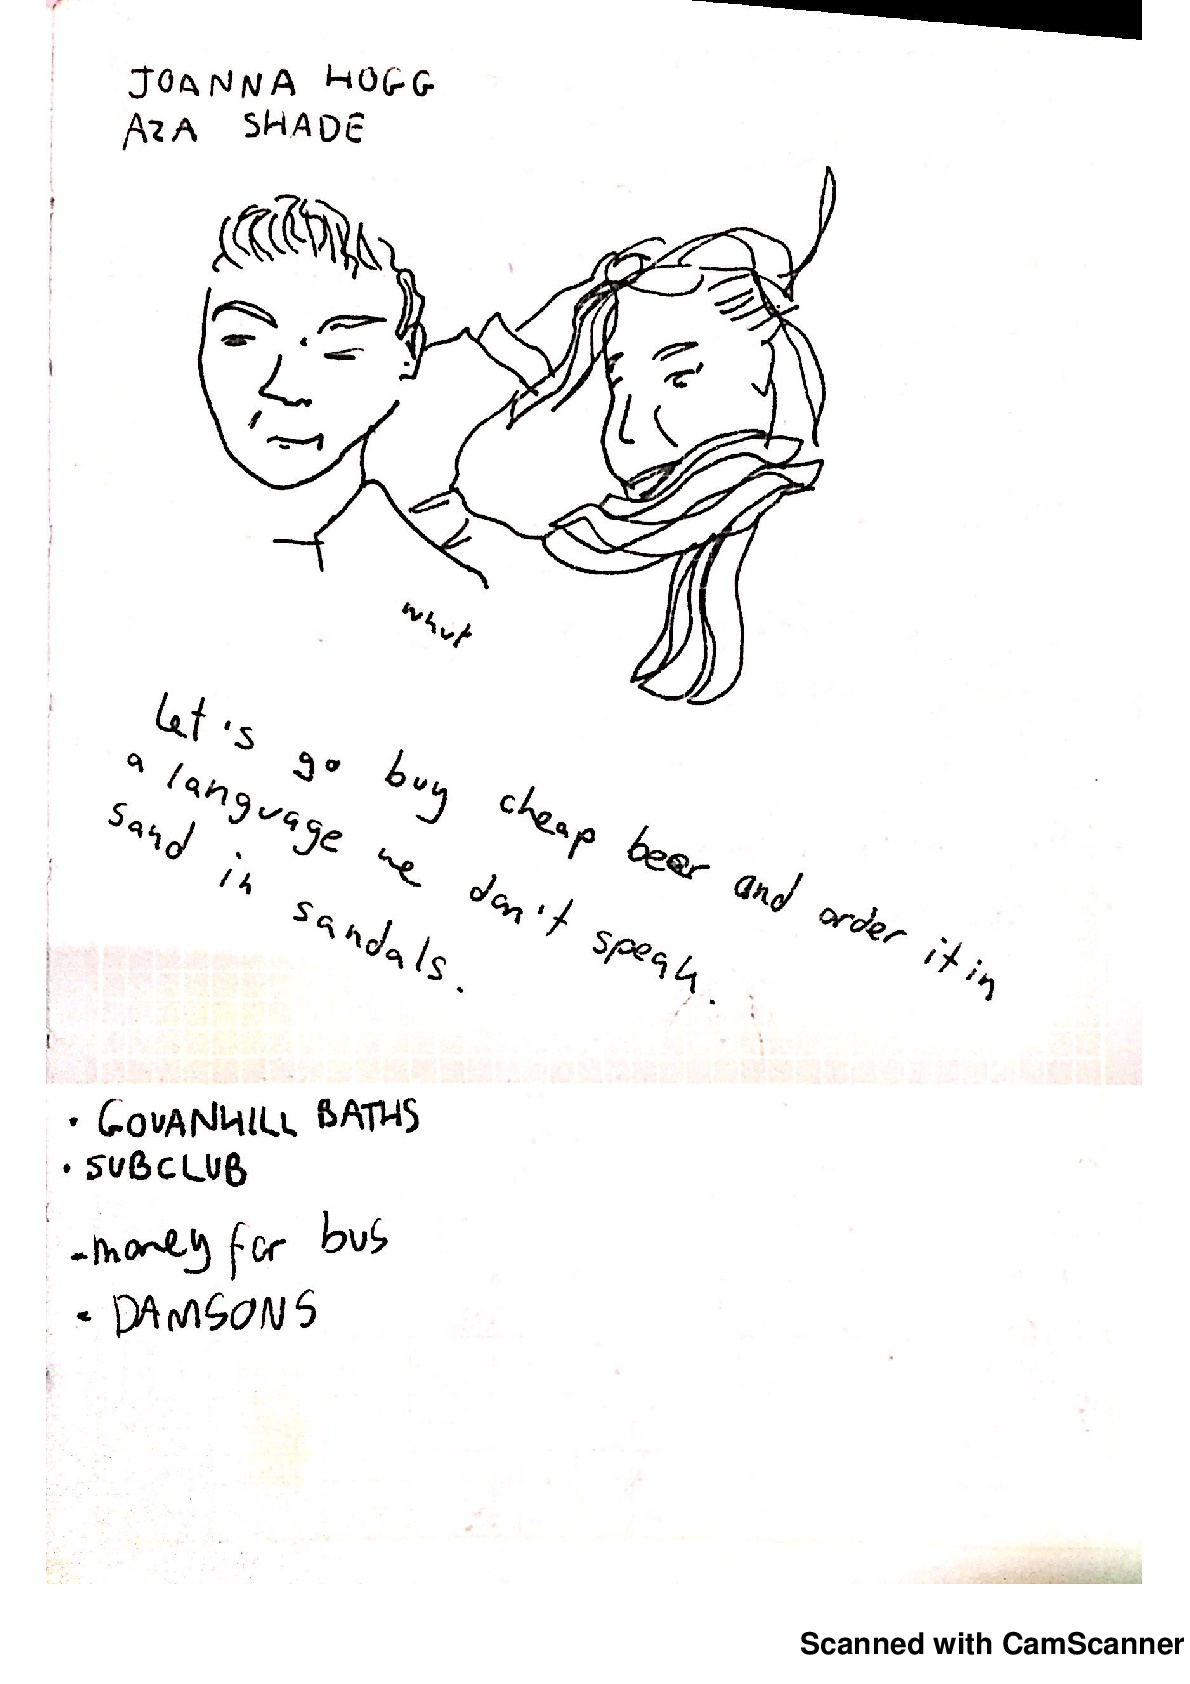 JOANNA HOGG
AZA SHADE
what
Let's go buy cheap beer and order it in
a language we don't speak.
sand in sandals.
• GOVANHILL BATHS
• SUBCLUB
- money for bus
- DAMSONS
Scanned with CamScanner